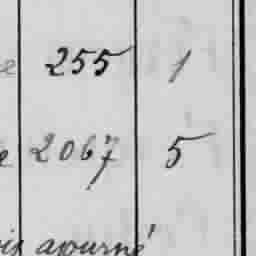 255 1
2067 5
ajourné